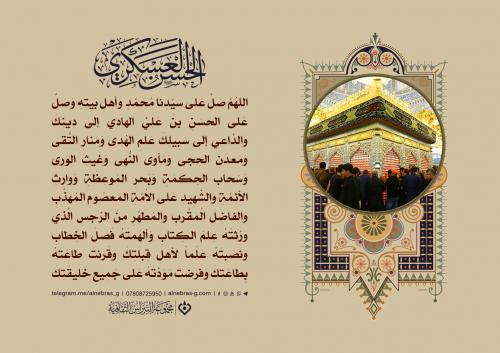 الحسن العسكري
اللهم صل على سيدنا محمد وأهل بيته وصل
على الحسن بن علي الهادي إلى دينك
والداعي إلى سبيلك علم الهدى ومنار التقى
ومعدن الحجى ومأوى النهى وغيث الورى
وسحاب الحكمة وبحر الموعظة ووارث
الأئمة والشهيد على الامة المعصوم المهذب
والفاضل المقرب والمطهر من الرجس الذي
ورثته علم الكتاب وألهمته فصل الخطاب
ونصبته علماً لأهل قبلتك وقرنت طاعته
بطاعتك وفرضت مودته على جميع خليقتك
telegram.me/alnebras_g | 07808725950 | alnebras-g.com |
مجموعة النبراس الثقافية